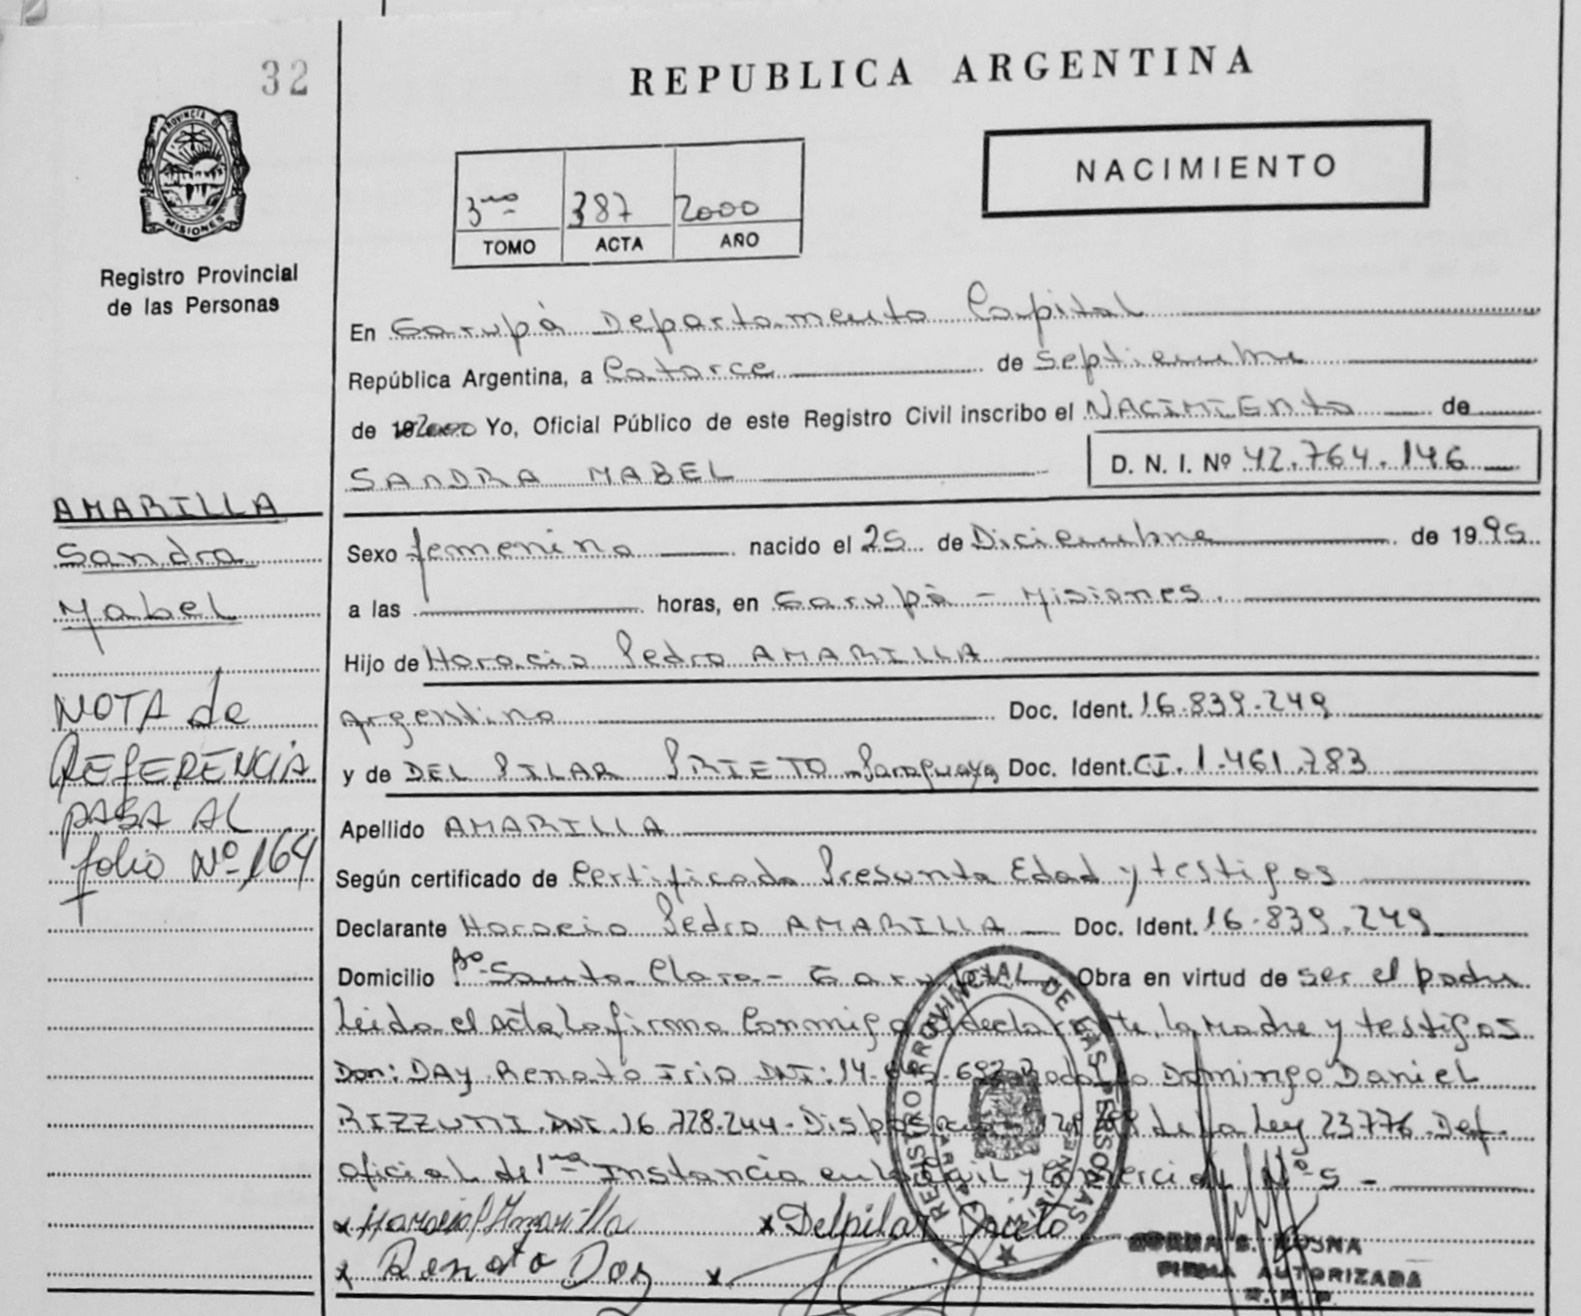 32
REPUBLICA ARGENTINA
PROVINCIA DE
MISIONES
Registro Provincial
de las Personas
3ro 387 2000
TOMO ACTA AÑO
NACIMIENTO
En Garupá Departamento Capital
República Argentina, a Catorce de Septiembre
de 2000 Yo, Oficial Público de este Registro Civil inscribo el NACIMIENTO de
SANDRA MABEL D. N. I. Nº 42.764.146
AMARILLA
Sandra
Mabel
NOTA de
REFERENCIA
PASA AL
folio Nº 164
Sexo femenino nacido el 25 de Diciembre de 1995
a las horas, en Garupá - Misiones.
Hijo de Horacio Pedro AMARILLA
Argentino Doc. Ident. 16.839.249
y de DEL PILAR PRIETO - Paraguaya Doc. Ident. CI. 1.461.783
Apellido AMARILLA
Según certificado de Certificado Presunta Edad y testigos
Declarante Horacio Pedro AMARILLA Doc. Ident. 16.839.249
Domicilio Bº Santa Clara - Garupá Obra en virtud de ser el padre
Leida el Acta La firma Conmigo el declarante, la Madre y testigos
Don: DAY Renato Irio DNI: 14. Domingo Daniel
RIZZUTTI DNI. 16.728.244 - de la Ley 23776 - Def.
oficial de 1ra Instancia en lo Civil y Comercial Nº 5 -
x Horacio P Amarilla x Delpilar Prieto
x Renato Day x
REGISTRO PROVINCIAL DE LAS PERSONAS
FIRMA AUTORIZADA
R. P. P.